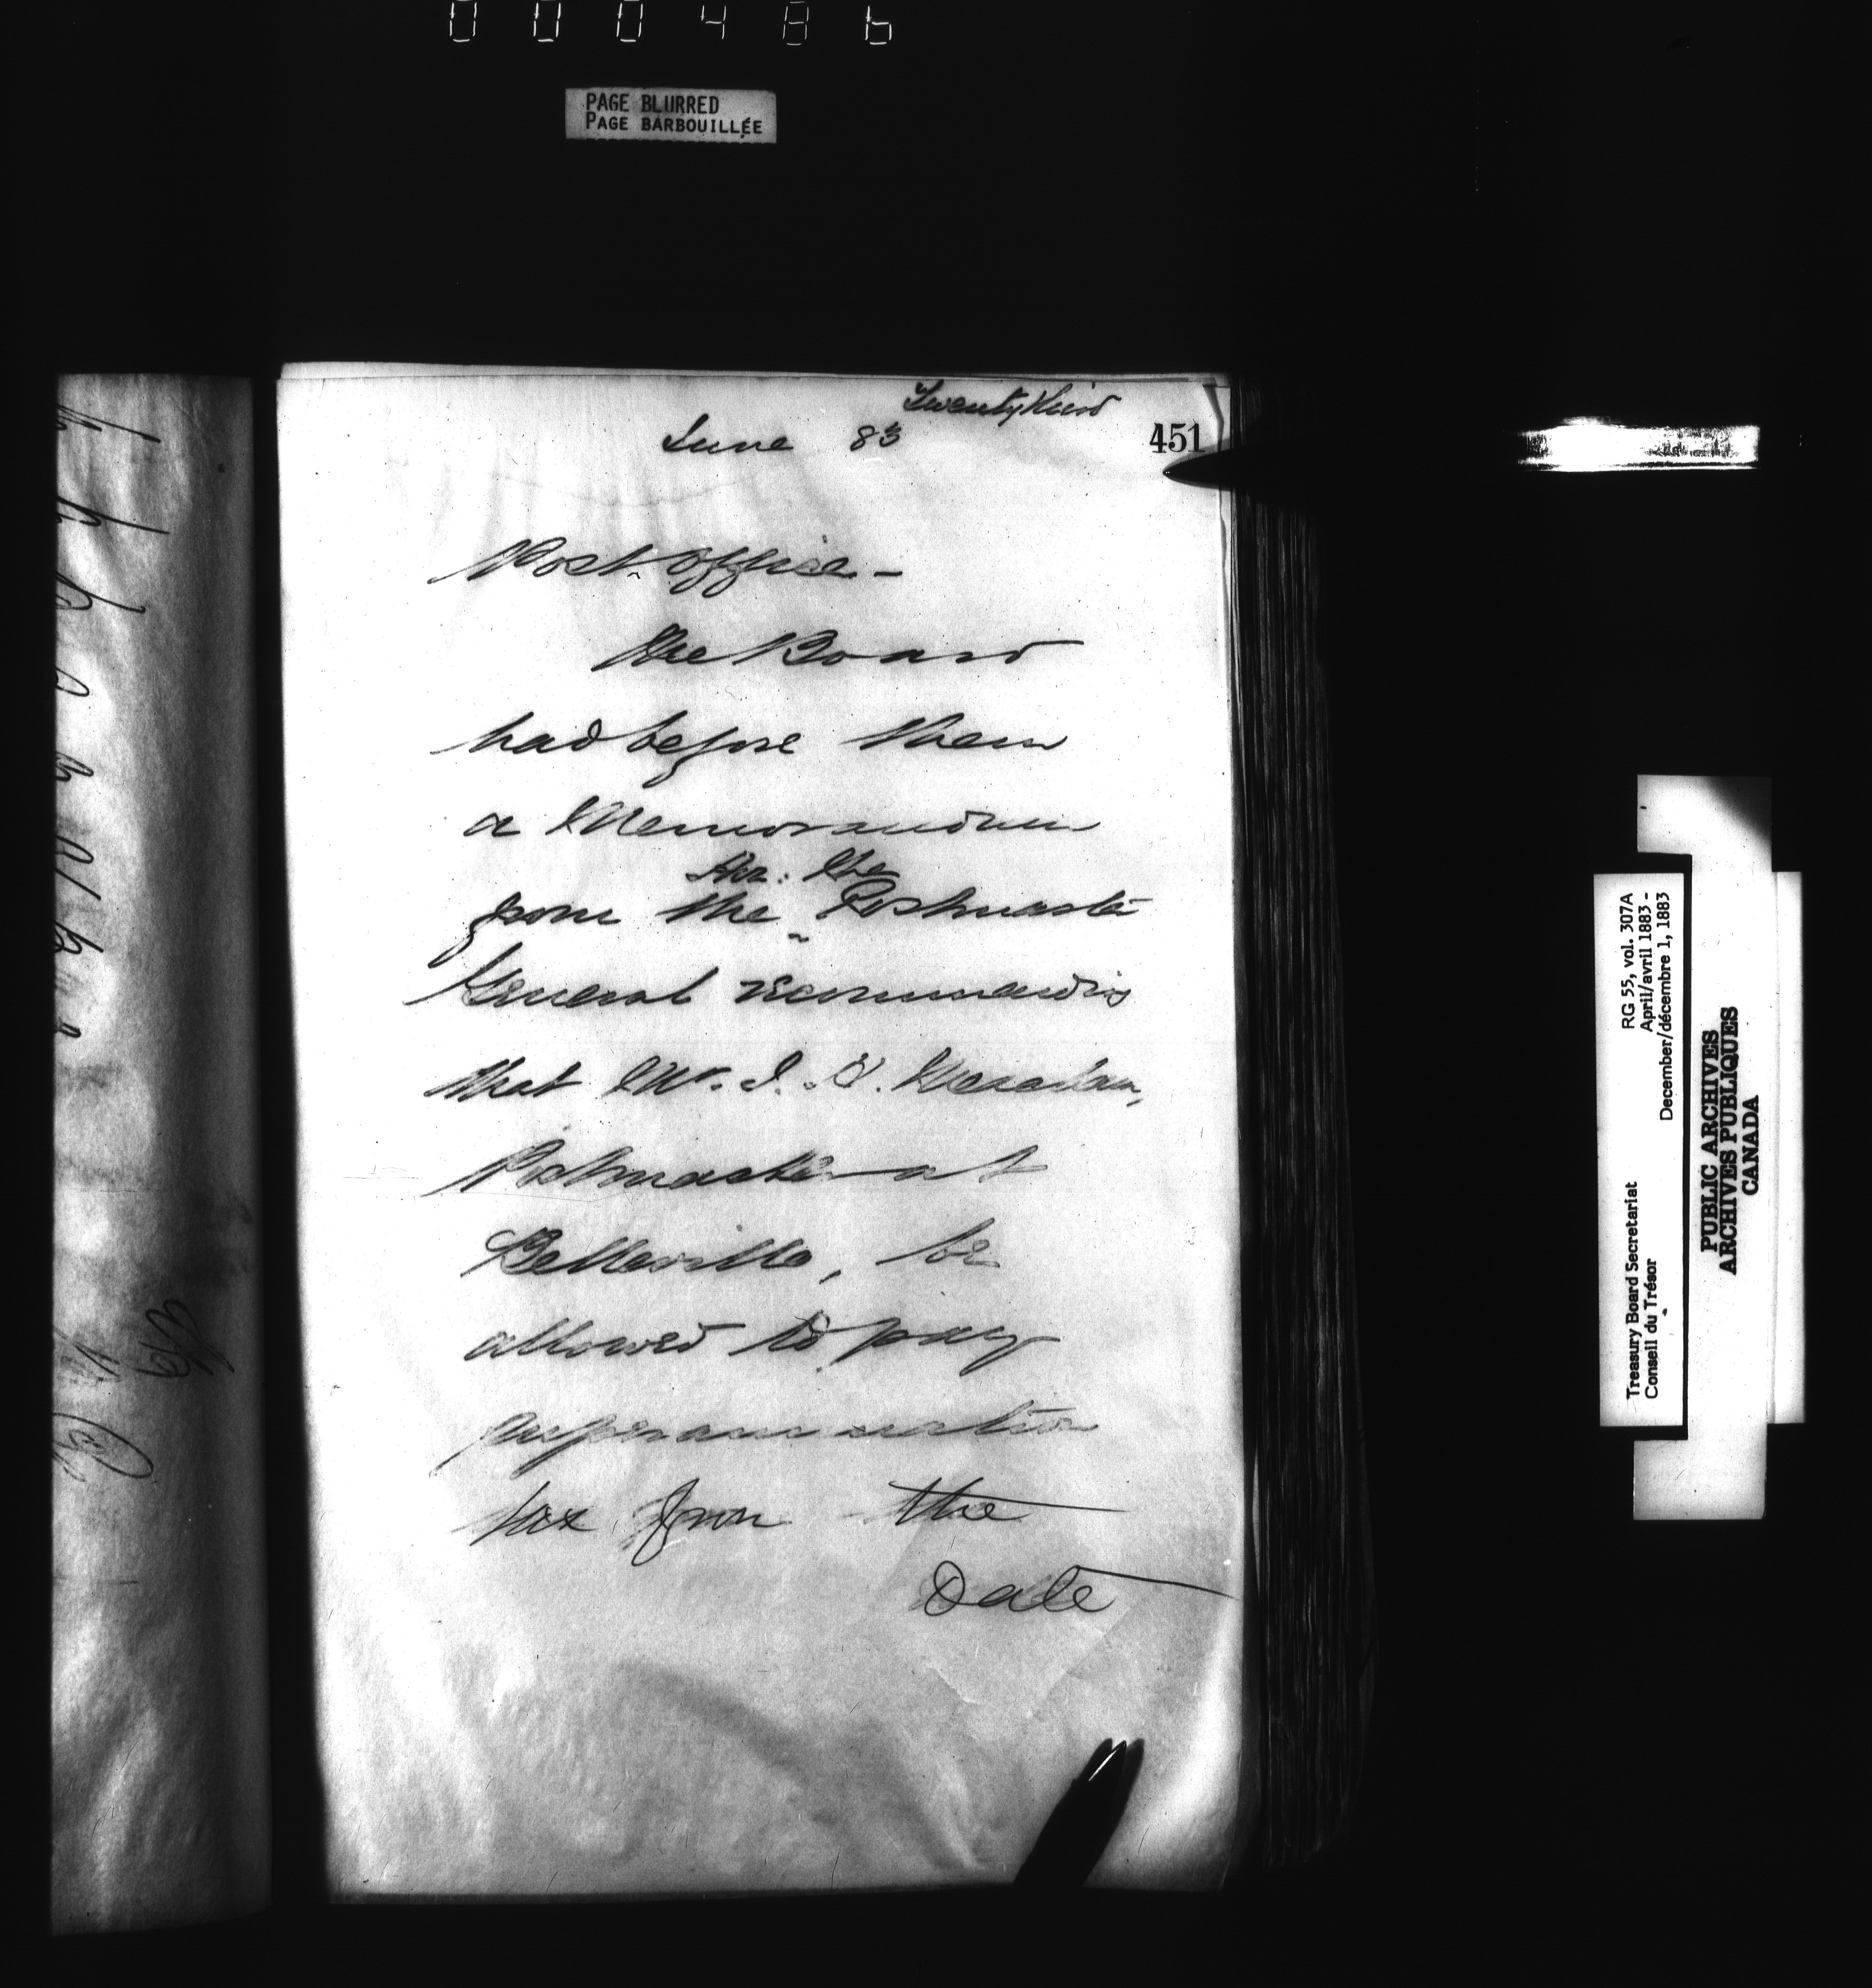 000486
PAGE BLURRED
PAGE BARBOUILLÉE
Twenty third
June 83
451
Post Office -
The Board
had before them
a Memorandum
Hon: the
from the ^ Postmaster
General recommending
that Mr. J. H. Meacham,
Postmaster at
Belleville, be
allowed to pay
superannuation
tax from the
Date
RG 55, vol. 307A
April/avril 1883 -
December/décembre 1, 1883
Treasury Board Secretariat
Conseil du Trésor
PUBLIC ARCHIVES
ARCHIVES PUBLIQUES
CANADA